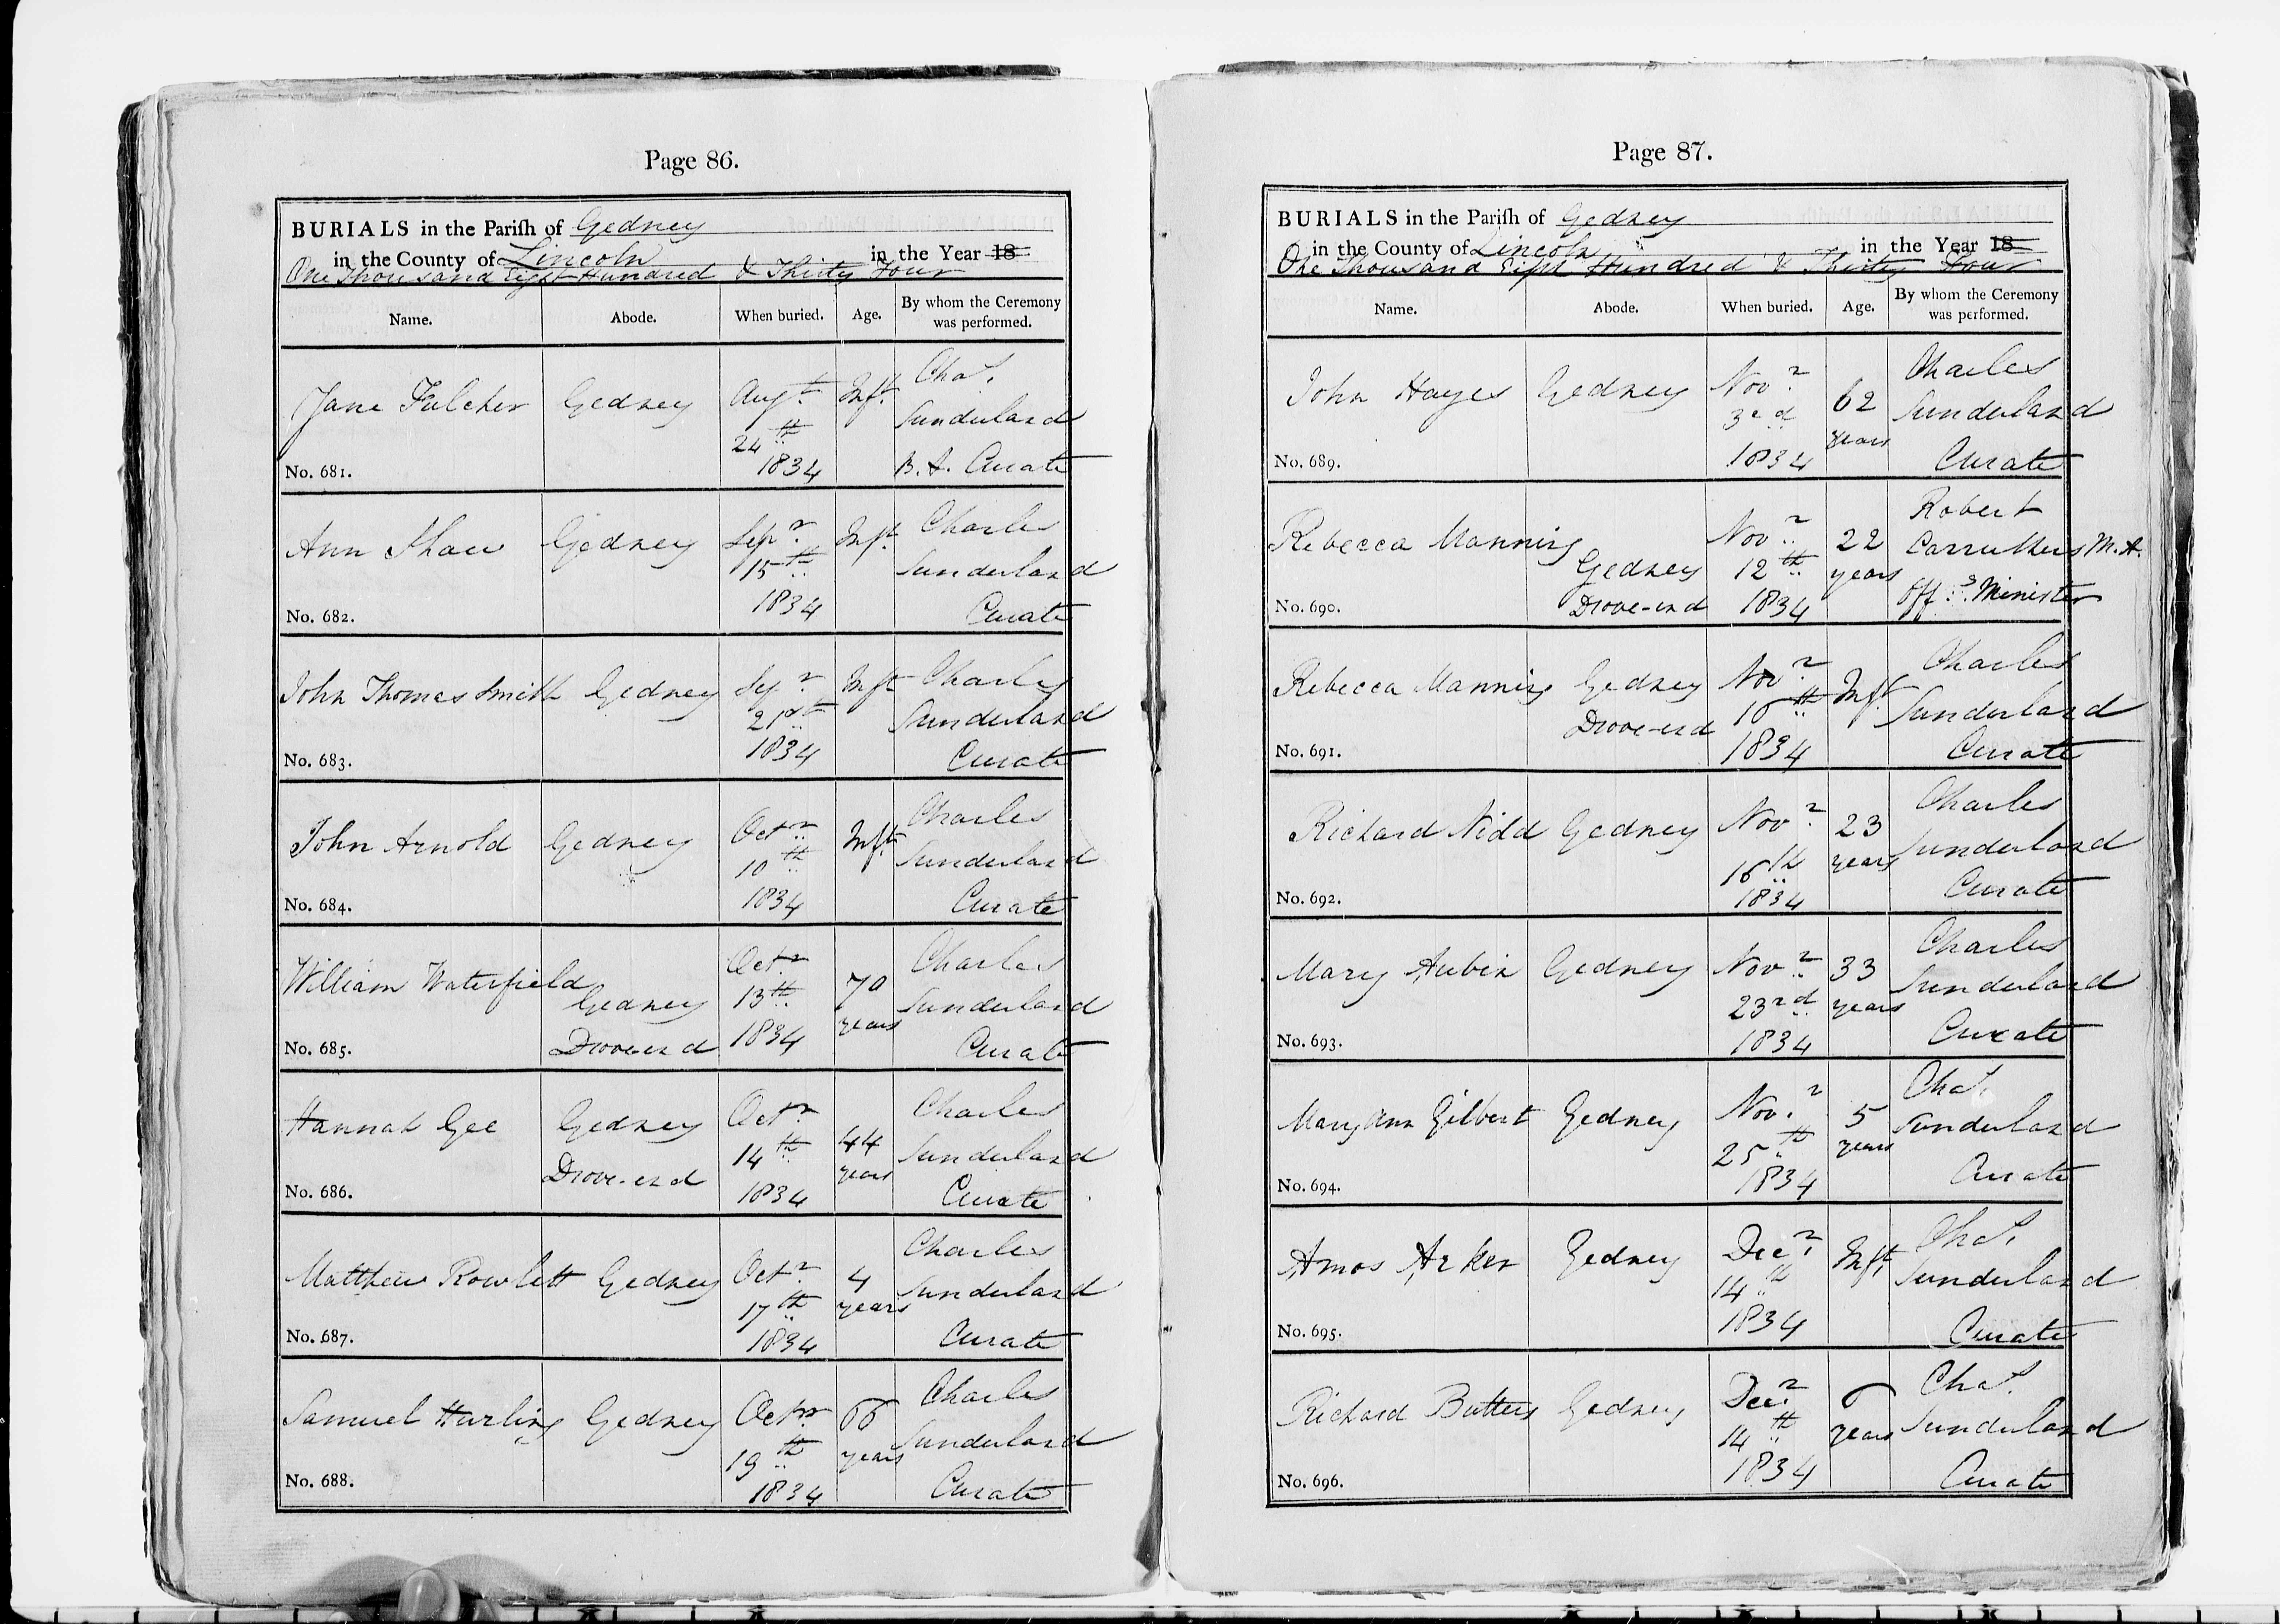 Page 86.
BURIALS in the Parish of Gedney
in the County of Lincoln in the Year 18
One Thousand Eight Hundred & Thirty Four
Name. Abode. When buried. Age. By whom the Ceremony was performed.
Jane Fulcher Gedney Augt. 24th 1834 Inft. Chas. Sunderland B.A. Curate
No. 681.
Ann Shaw Gedney Sepr. 15th 1834 Inft. Charles Sunderland Curate
No. 682.
John Thomas Smith Gedney Sepr. 21st 1834 Inft Charles Sunderland Curate
No. 683.
John Arnold Gedney Octr. 10th 1834 Inft. Charles Sunderland Curate
No. 684.
William Waterfield Gedney Drove-end Octr. 13th 1834 70 years Charles Sunderland Curate
No. 685.
Hannah Gee Gedney Drove-end Octr. 14th 1834 44 years Charles Sunderland Curate
No. 686.
Matthew Rowlett Gedney Octr. 17th 1834 4 years Charles Sunderland Curate
No. 687.
Samuel Hurling Gedney Octr. 19th 1834 66 years Charles Sunderland Curate
No. 688.
Page 87.
BURIALS in the Parish of Gedney
in the County of Lincoln in the Year 18
One Thousand Eight Hundred & Thirty Four
Name. Abode. When buried. Age. By whom the Ceremony was performed.
John Hayes Gedney Novr. 3rd 1834 62 years Charles Sunderland Curate
No. 689.
Rebecca Manning Gedney Drove-end Novr. 12th 1834 22 years Robert Carruthers M.A. Offg. Minister
No. 690.
Rebecca Manning Gedney Drove-end Novr. 16th 1834 Inft. Charles Sunderland Curate
No. 691.
Richard Nidd Gedney Novr. 16th 1834 23 years Charles Sunderland Curate
No. 692.
Mary Aubin Gedney Novr. 23rd 1834 33 years Charles Sunderland Curate
No. 693.
Mary Ann Gilbert Gedney Novr. 25th 1834 5 years Chas. Sunderland Curate
No. 694.
Amos Arker Gedney Decr. 14th 1834 Inft. Chas. Sunderland Curate
No. 695.
Richard Butters Gedney Decr. 14th 1834 6 years Chas. Sunderland Curate
No. 696.